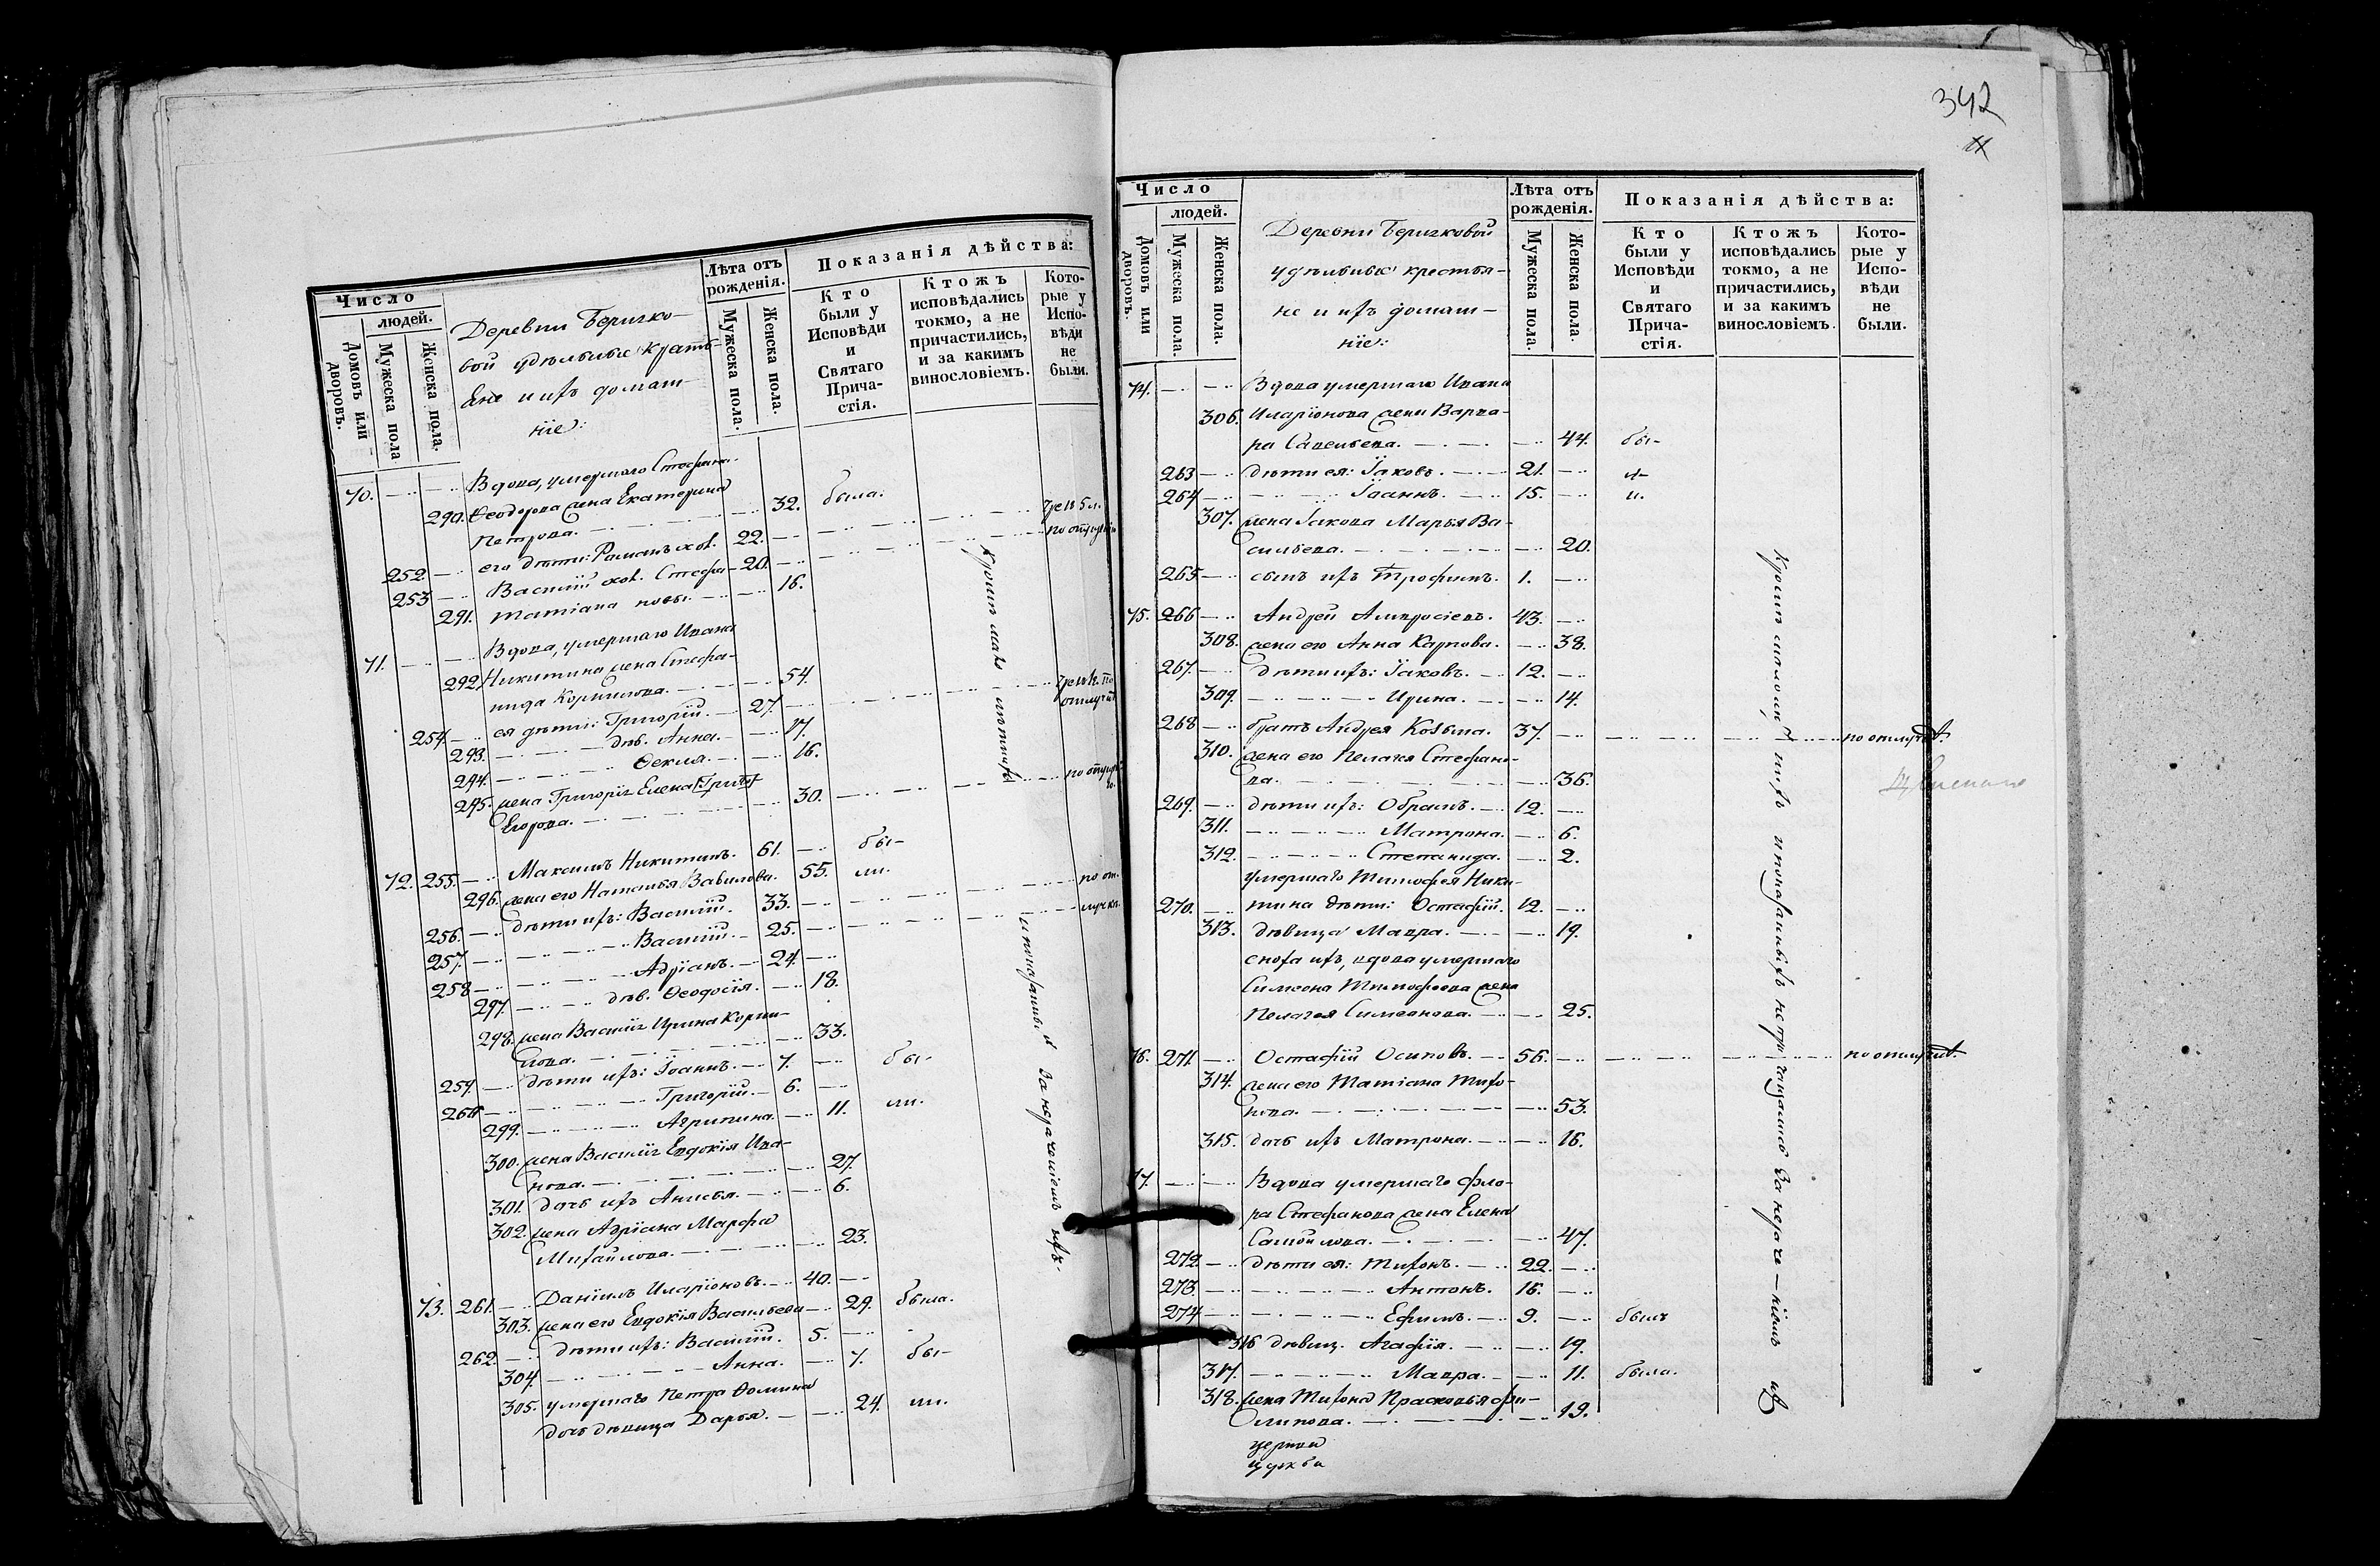 Число
людей.
Домовъ или дворовъ.
Мужеска пола
Женска пола.
Деревни Беричко-
вой удѣльные кресть-
яне и ихъ домаш-
ніе:
Лѣта отъ рожденія.
Мужеска пола.
Женска пола.
Показанія дѣйства:
Кто были у Исповѣди и Святаго Прича-стія.
Ктожъ исповѣдались токмо, а не причастились, и за какимъ винословіемъ.
Кото-рые у Испо-вѣди не были.
70. Вдова, умершаго Стефана
290. Ѳеодорова жена Екатерина
Петрова. 32. была.
252. его дѣти: Романъ хол. 22.
253 Василій хол. 20.
291. Татіана 16.
71. Вдова, умершаго Ивана
292. Никитина жена Стефа-
нида Корнилова. 54.
254. ея дѣти: Григорій. 27.
293. дѣв. Анна. 17.
294. Ѳекла. 16.
295. жена Григорія Елена
Егорова. 30.
72. 255. Максимъ Никитинъ. 61. бы-
296. жена его Наталья Вавилова. 55. ли.
256. дѣти ихъ: Василій. 33. по от-
257. Василій. 25. лучкѣ.
258 Адріанъ. 24.
297. дѣв. Ѳеодосія. 18.
298. жена Василія Ирина Корни-
лова. 33.
259. дѣти ихъ: Іоаннъ. 7. бы-
260 Григорій. 6.
299. Агрипина. 11. ли.
300. жена Василія Евдокія Ива-
нова. 27.
301. дочь ихъ Анисья. 6.
302. жена Адріана Марфа
Михайлова. 23.
73. 261. Даніилъ Иларіоновъ. 40.
303. жена его Евдокія Васильева 29. была.
262. дѣти ихъ: Василій. 5.
304. Анна. 7. бы-
305. умершаго Петра Ѳомина
дочь дѣвица Дарья. 24. ли.
342
Число
людей.
Домовъ или дворовъ.
Мужеска пола.
Женска пола.
Деревни Беричковой
удѣльные крестья-
не и ихъ домаш-
ніе:
Лѣта отъ рожденія.
Мужеска пола.
Женска пола.
Показанія дѣйства:
Кто были у Исповѣди и Святаго Прича-стія.
Ктожъ исповѣдались токмо, а не причастились, и за какимъ винословіемъ.
Кото-рые у Испо-вѣди не были.
74. Вдова умершаго Ивана
306. Иларіонова жена Варва-
ра Савельева. 44. бы-
263 дѣти ея: Іаковъ. 21. л-
264 Іоаннъ. 15. и.
307. жена Іакова Марья Ва-
сильева. 20.
265 сынъ ихъ Трофимъ. 1.
75. 266 Андрей Амвросіевъ. 43.
308. жена его Анна Карпова. 38.
267. дѣти ихъ: Іаковъ. 12.
309. Ирина. 14.
268 братъ Андрея Козьма. 37. по отлучкѣ.
310. жена его Пелагея Стефано-
ва. 36.
269. дѣти ихъ: Обрамъ. 12.
311. Матрона. 6.
312. Степанида. 2.
умершаго Тимофея Ники-
270. тина дѣти: Остафій. 12.
313. дѣвица Мавра. 19.
сноха ихъ, вдова умершаго
Симеона Тимофеева жена
Пелагея Симеонова. 25.
76. 271. Остафій Осиповъ. 56. по отлучкѣ.
314. жена его Татіана Тихо-
нова. 53.
315. дочь ихъ Матрона. 16.
77. Вдова умершаго Фло-
ра Стефанова жена Елена
Самойлова. 47.
272. дѣти ея: Тихонъ. 22.
273. Антонъ. 16.
274 Ефимъ. 9. былъ
316 дѣвиц. Агафія. 19.
317. Мавра. 11. была.
318. жена Тихона Прасковья Фи-
липова. 19.